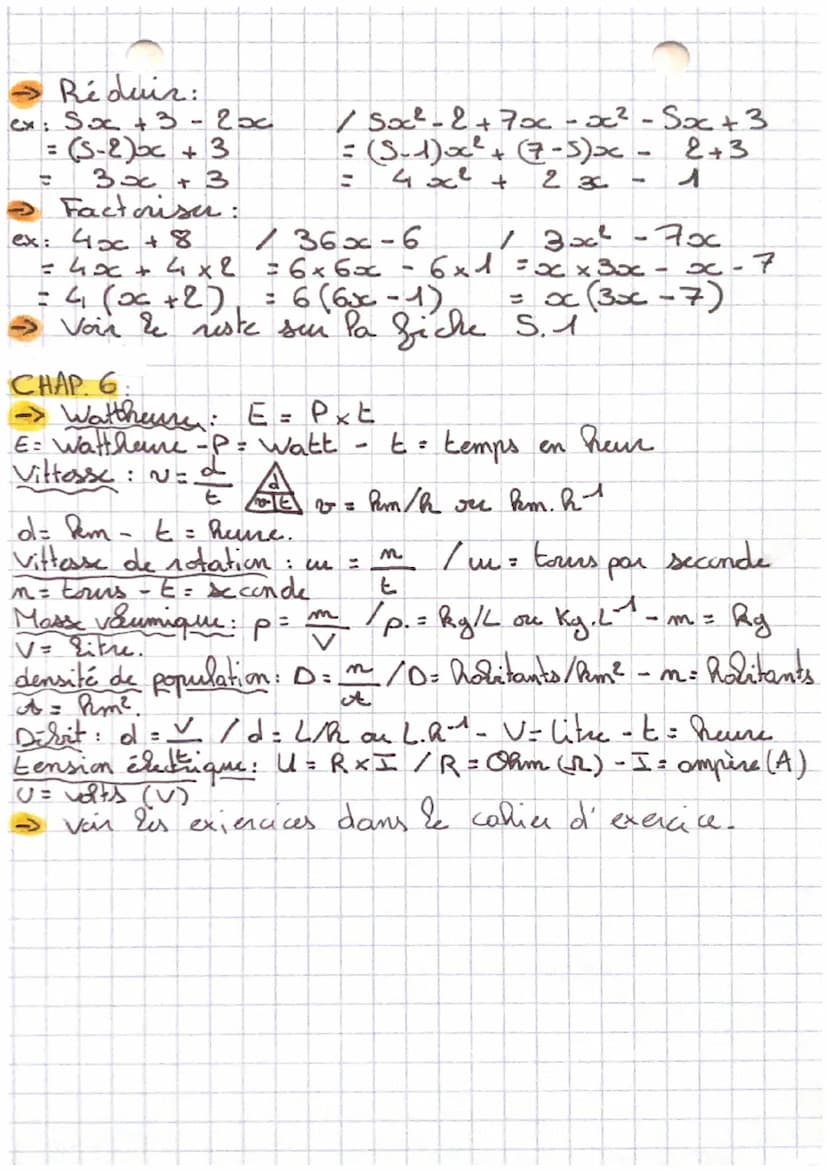 → Réduire :
ex : 5x + 3 - 2x / 5x² - 2 + 7x - x² - 5x + 3
= (5-2)x + 3 = (5-1)x² + (7-5)x - 2+3
= 3x + 3 = 4x² + 2x - 1
→ Factoriser :
ex : 4x + 8 / 36x - 6 / 3x² - 7x
= 4x + 4 × 2 = 6×6x - 6×1 = x × 3x - x - 7
= 4(x+2) = 6(6x-1) = x(3x-7)
→ Voir le reste sur la fiche S.1
CHAP. 6 :
→ Wattheure : E = P×t
E = Wattheure - P = Watt - t = temps en heur
Vittesse : v = d/t d v t v = km/h ou km.h-1
d = km - t = heure.
Vittesse de rotation : m = n/t / m = tours par seconde
n = tours - t = seconde
Masse volumique : ρ = m/V / ρ. = kg/L ou Kg.L-1 - m = kg
V = litre.
densité de population : D = n/A / D = habitants/km² - n = habitants
A = km².
Débit : d = V/t / d = L/h ou L.h-1 - V = litre - t = heure
tension électrique : U = R×I / R = Ohm (Ω) - I = ampère (A)
U = volts (V)
→ voir les exiercices dans le cahier d'exercice.